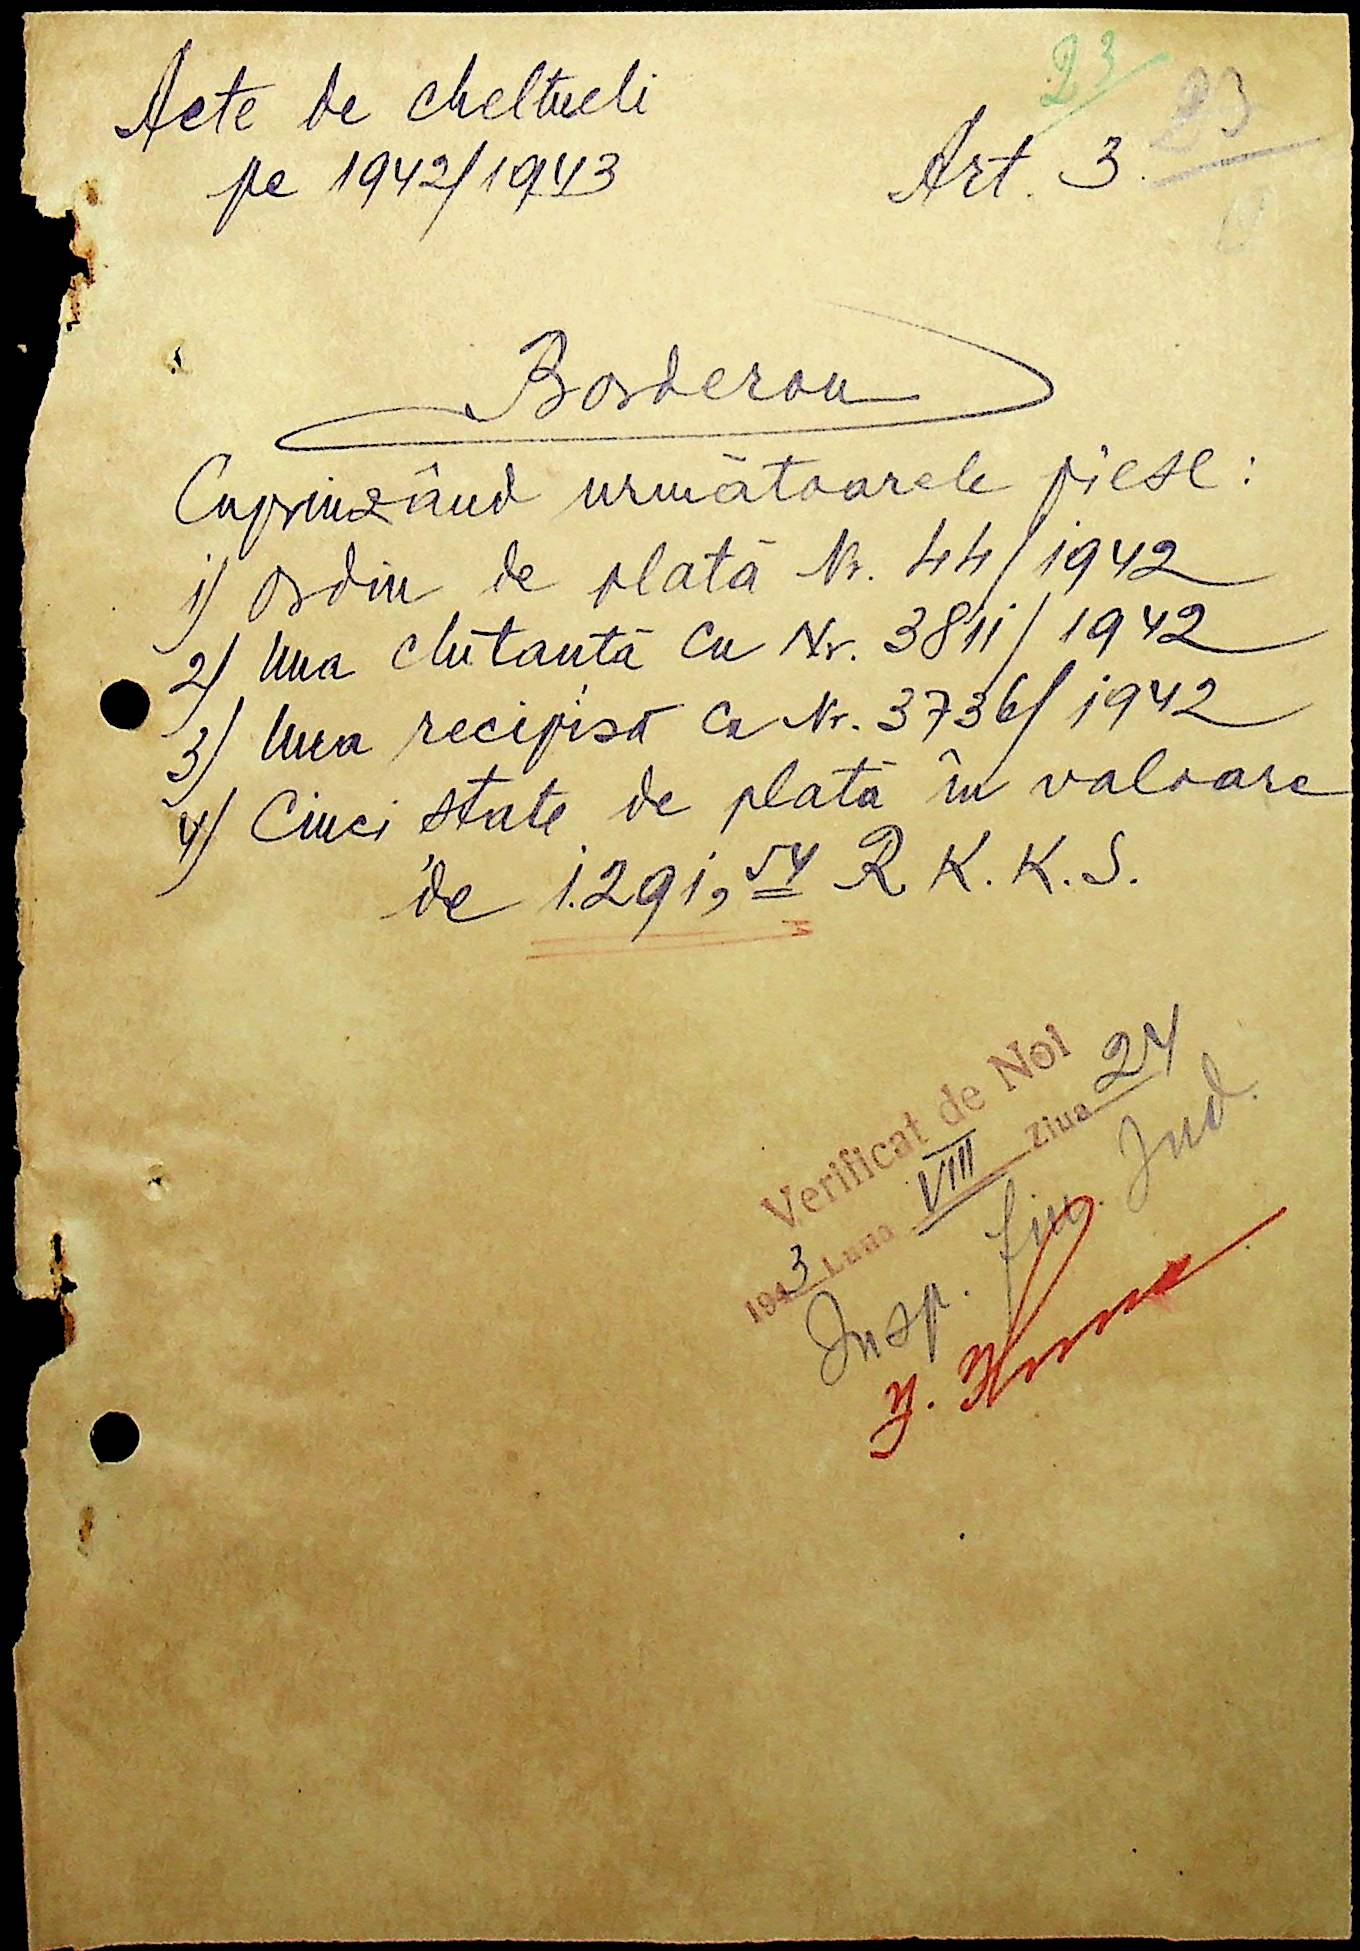 23
23
Acte de cheltueli
pe 1942/1943
Art. 3.
Borderou
Cuprinzând următoarele piese:
1) Ordin de plată Nr. 44/1942
2) Una chitantă cu Nr. 3811/1942
3) Una recipisă cu Nr. 3736/1942
4) Cinci state de plată în valoare
de 1.291,54 R. K. K. S.
Verificat de Noi
1943 Luna VIII Ziua 24
Insp. fin. Jud.